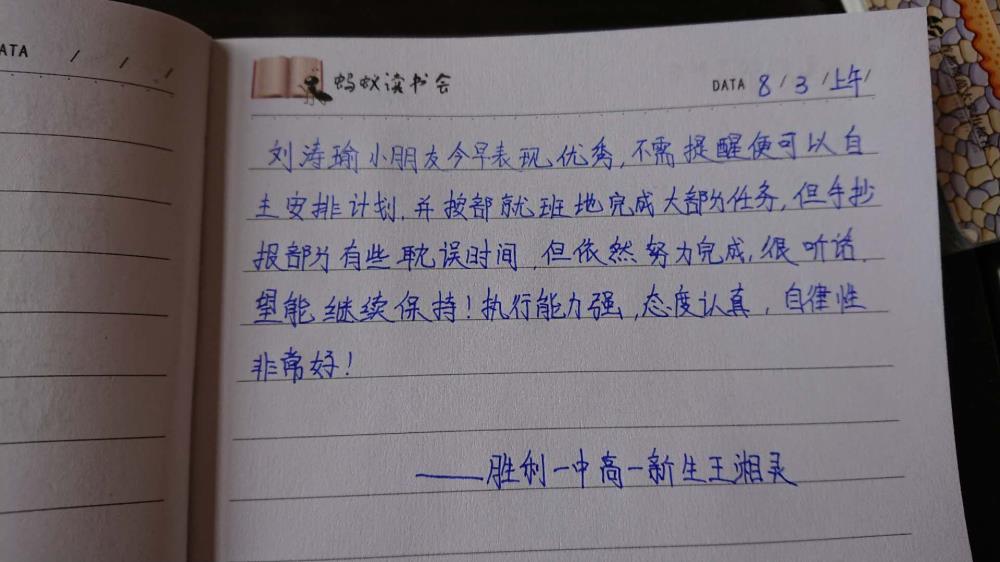 ATA / / /
蚂蚁读书会 DATA 8 / 3 / 上午 /
刘涛瑜小朋友今早表现优秀,不需提醒便可以自
主安排计划,并按部就班地完成大部分任务,但手抄
报部分有些耽误时间,但依然努力完成,很听话,
望能继续保持!执行能力强,态度认真,自律性
非常好!
——胜利一中高一新生王湘灵